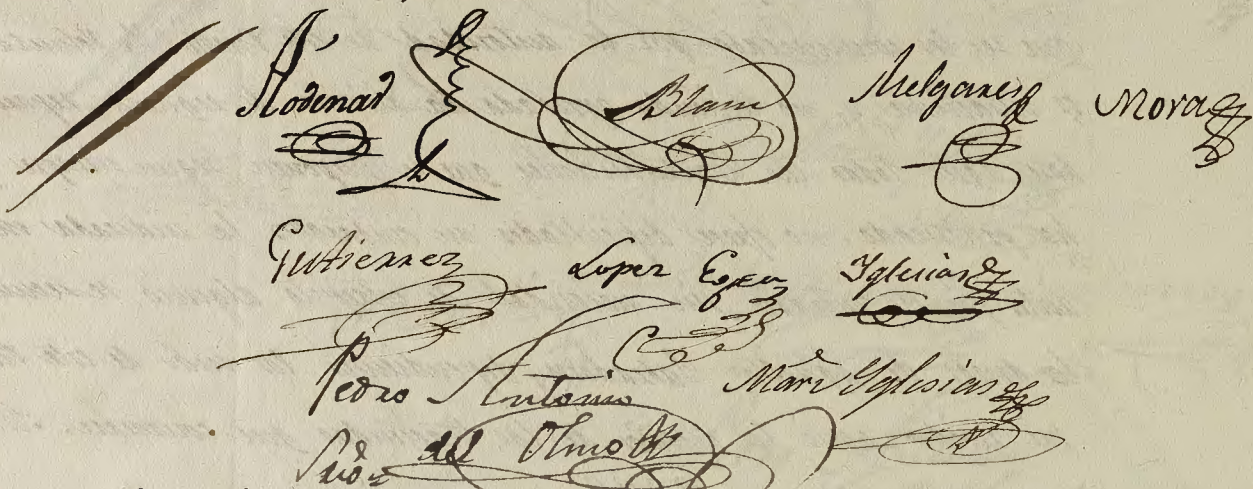 Rodenas Blanc Melgarez Mora
Gutierrez Lopez Egea Yglesias
Pedro Antonio Marn Yglesias
del Olmo